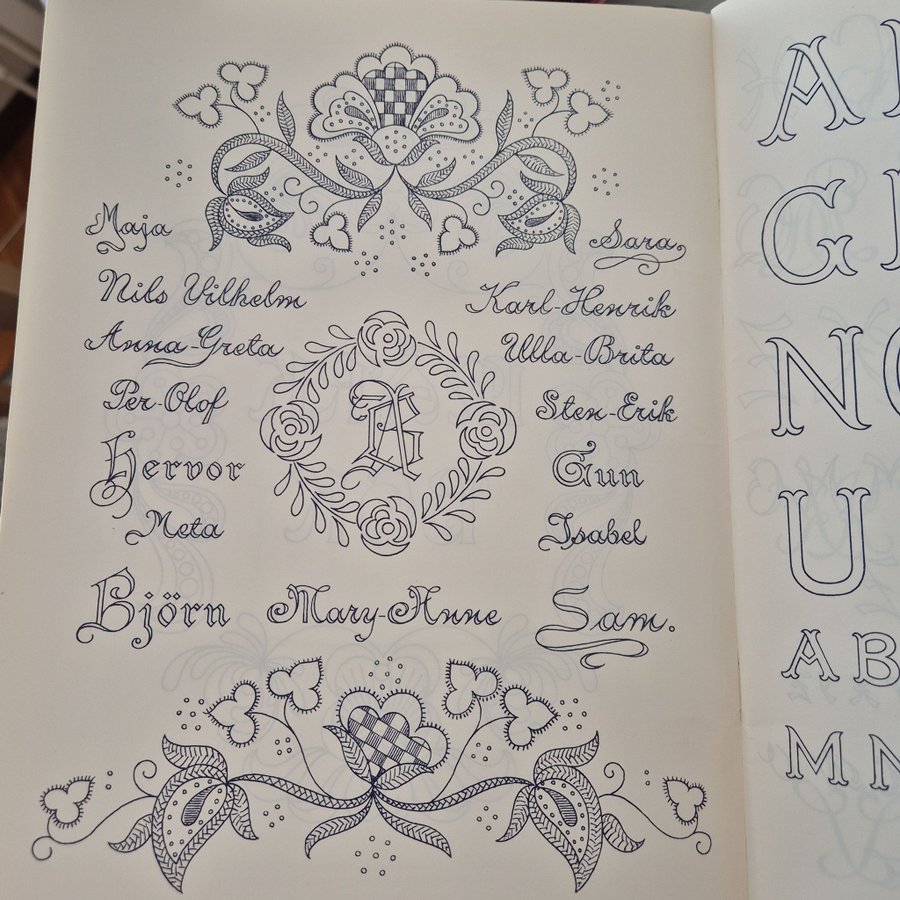 Maja
Nils Vilhelm
Anna-Greta
Per-Olof
Hervor
Meta
Björn
Mary-Anne
Sara
Karl-Henrik
Ulla-Brita
Sten-Erik
Gun
Isabel
Sam.
A
G
N
U
AB
MN